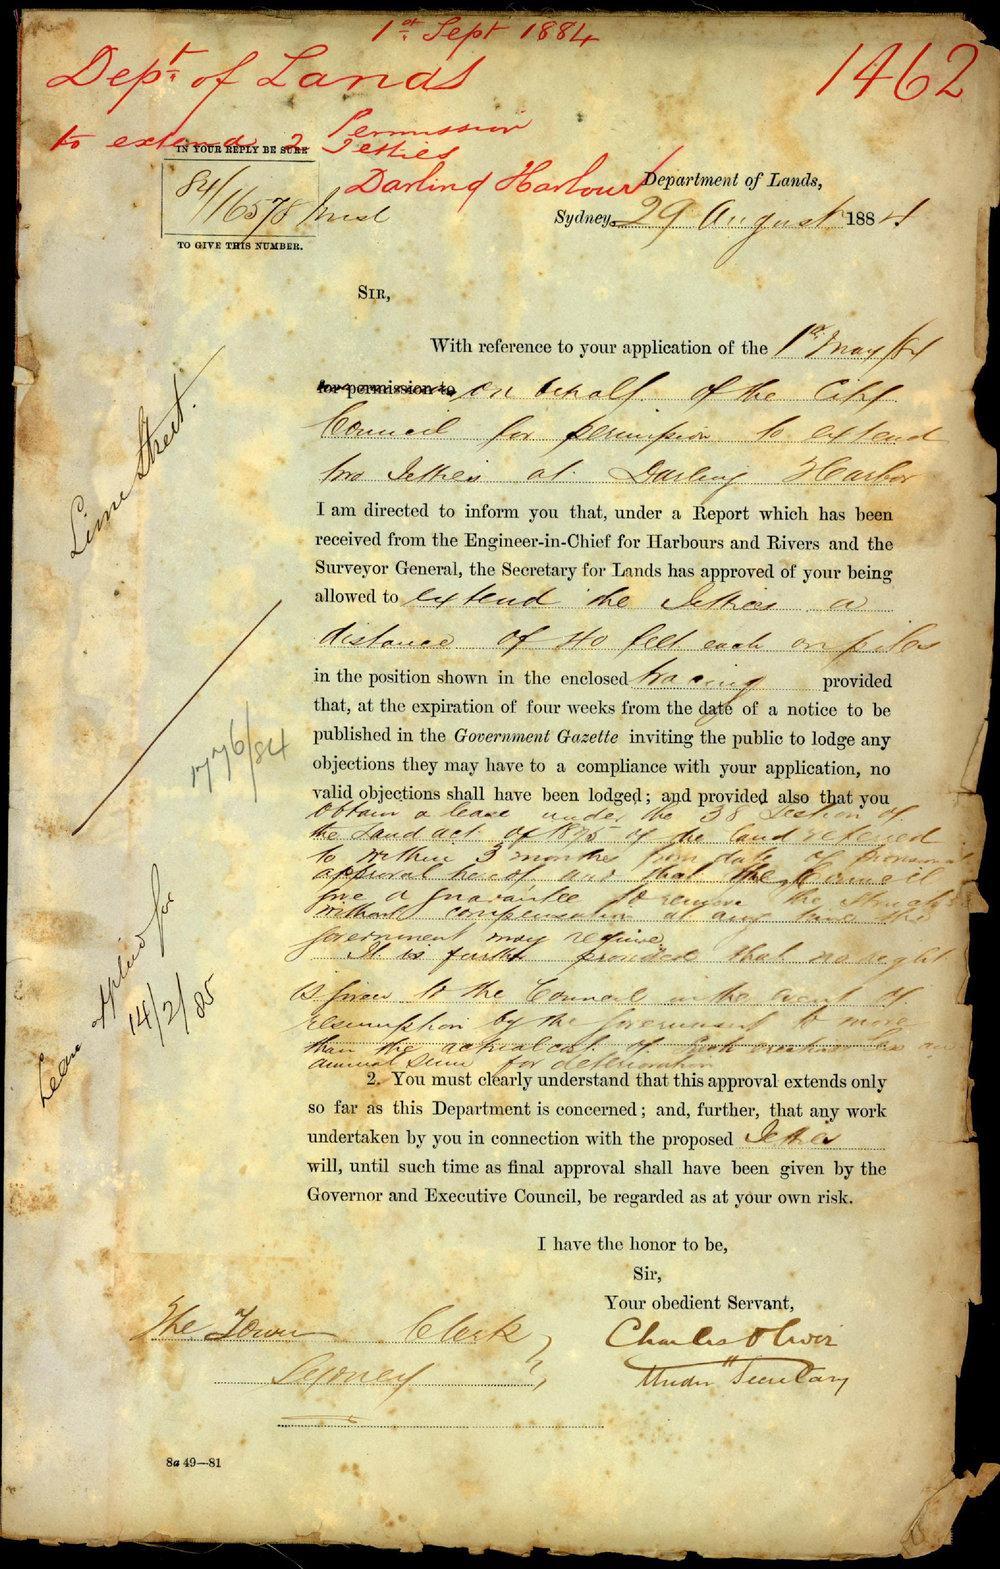 1st Sept 1884
Dept. of Lands
1462
Permission
to extend 2 Jetties
Darling Harbour
IN YOUR REPLY BE SURE
84/16578 Misl
TO GIVE THIS NUMBER.
Department of Lands,
Sydney, 29 August 1884
SIR,
With reference to your application of the 1st May/84
for permission to on behalf of the City
Council for permission to extend
two Jetties at Darling Harbor
I am directed to inform you that, under a Report which has been
received from the Engineer-in-Chief for Harbours and Rivers and the
Surveyor General, the Secretary for Lands has approved of your being
allowed to extend the Jetties a
distance of 40 feet each on piles
in the position shown in the enclosed tracing provided
that, at the expiration of four weeks from the date of a notice to be
published in the Government Gazette inviting the public to lodge any
objections they may have to a compliance with your application, no
valid objections shall have been lodged; and provided also that you
obtain a lease under the 38 Section of
the Land act of 1875 of the land referred
to within 3 months from date of provisional
approval hereof, and that the Council
give a guarantee to remove the
without compensation at any time the
Government may require.
It is further provided that no right
is given to the Council in the event of
resumption by the Government to more
than the actual cost of such erections less an
annual sum for deterioration
2. You must clearly understand that this approval extends only
so far as this Department is concerned; and, further, that any work
undertaken by you in connection with the proposed Jetties
will, until such time as final approval shall have been given by the
Governor and Executive Council, be regarded as at your own risk.
I have the honor to be,
Sir,
Your obedient Servant,
Charles Oliver
Under Secretary
The Town Clerk
Sydney
8a 49—81
Lime Street.
1776/84
Lease applied for
14/2/85